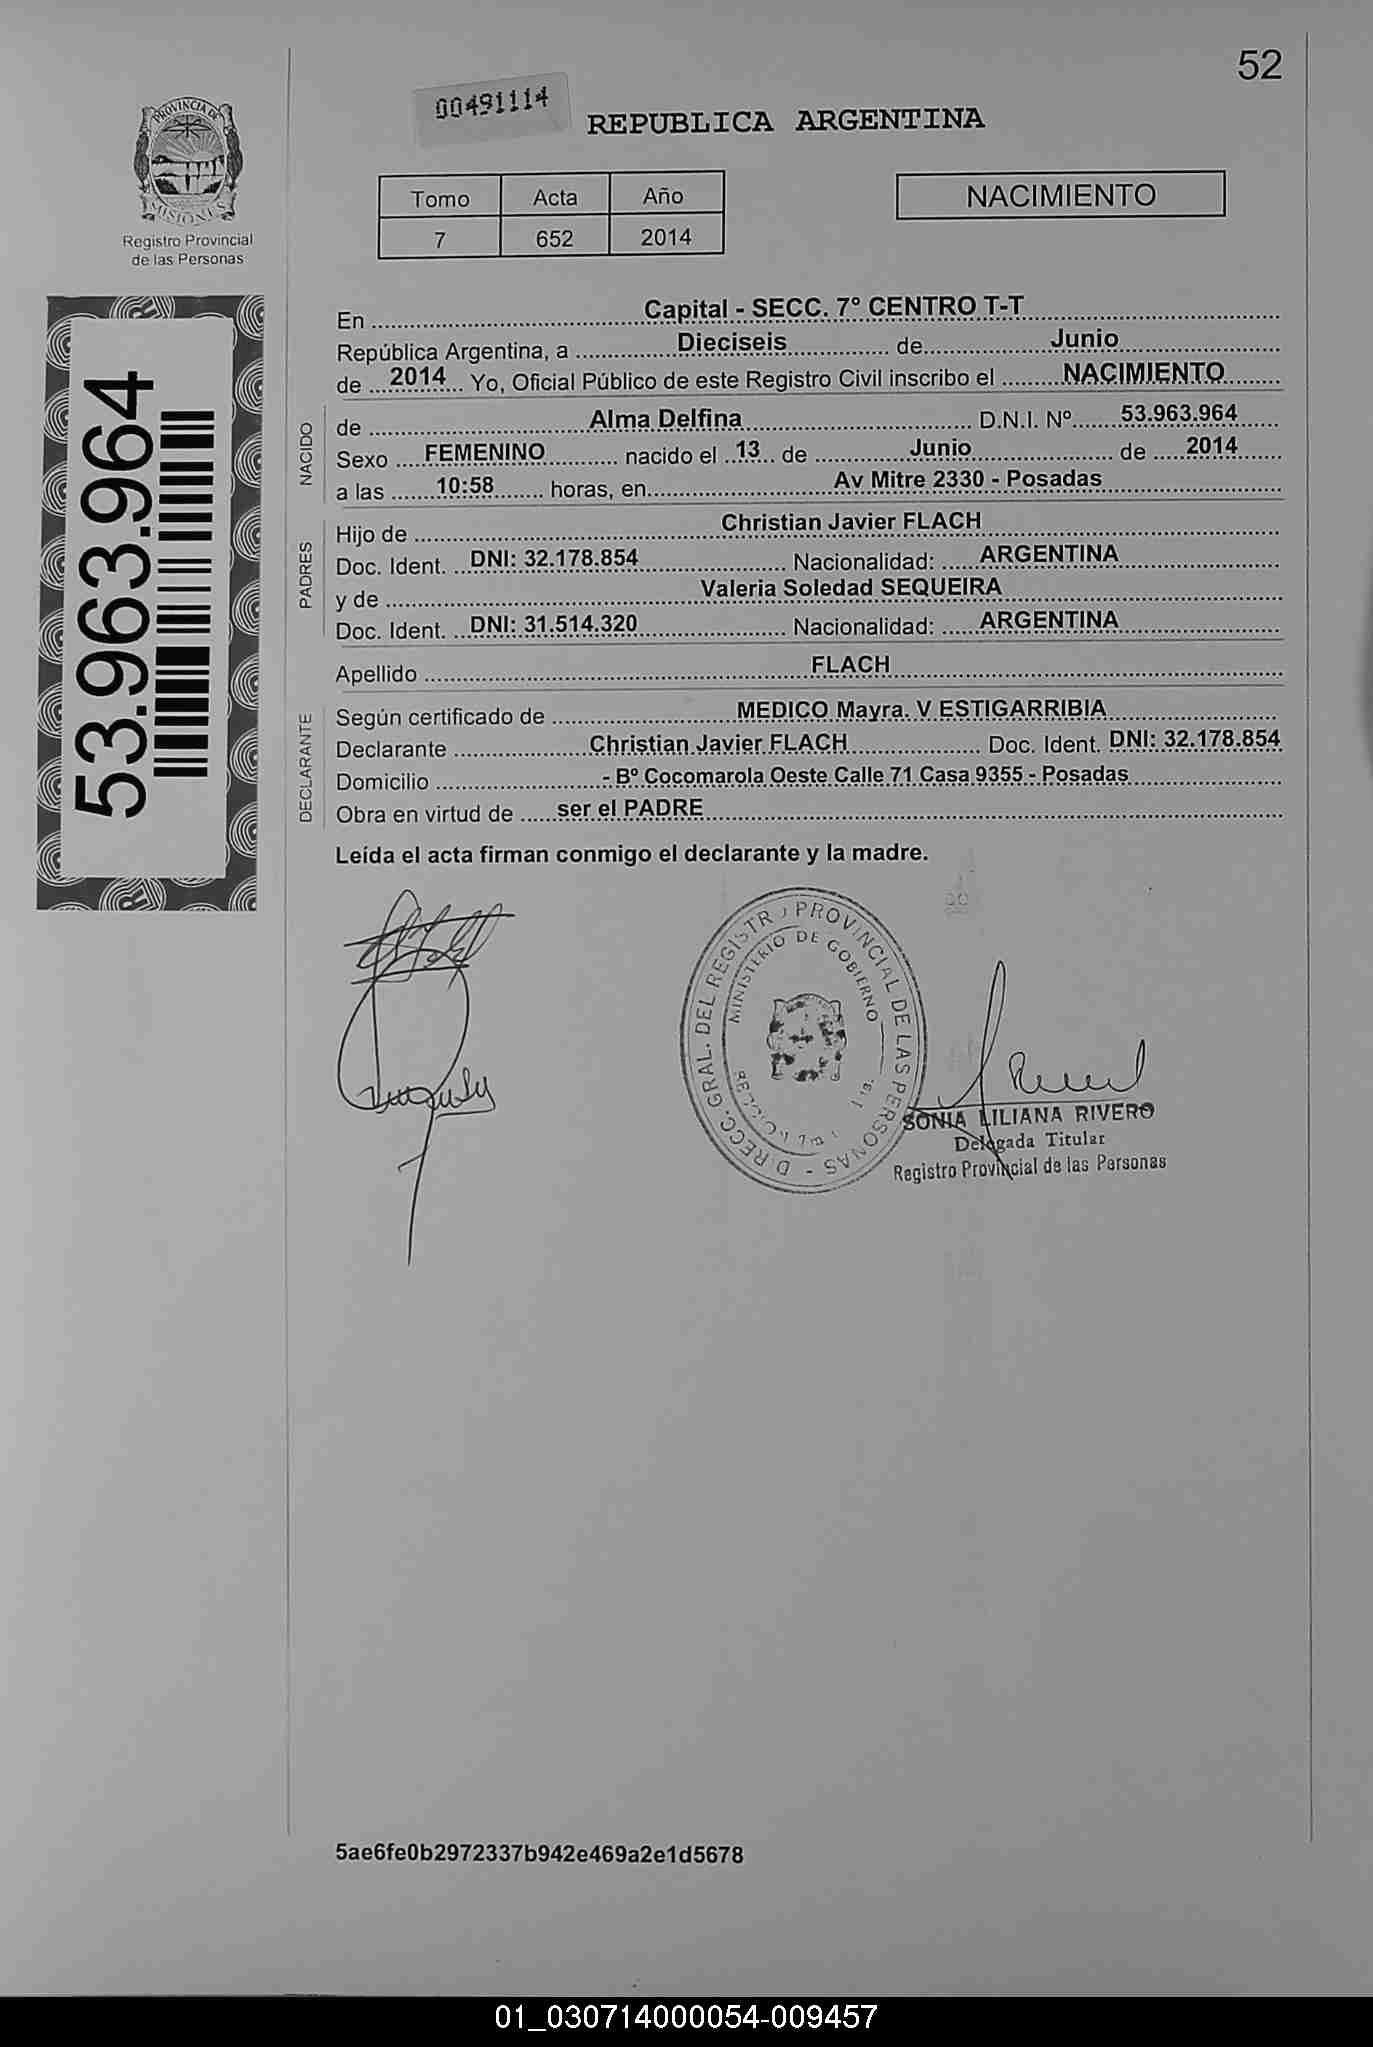 52
00491114
REPUBLICA ARGENTINA
PROVINCIA DE
MISIONES
Registro Provincial
de las Personas
Tomo Acta Año
7 652 2014
NACIMIENTO
53.963.964
En Capital - SECC. 7° CENTRO T-T
República Argentina, a Dieciseis de Junio
de 2014 Yo, Oficial Público de este Registro Civil inscribo el NACIMIENTO
NACIDO
de Alma Delfina D.N.I. Nº 53.963.964
Sexo FEMENINO nacido el 13 de Junio de 2014
a las 10:58 horas, en Av Mitre 2330 - Posadas
PADRES
Hijo de Christian Javier FLACH
Doc. Ident. DNI: 32.178.854 Nacionalidad: ARGENTINA
y de Valeria Soledad SEQUEIRA
Doc. Ident. DNI: 31.514.320 Nacionalidad: ARGENTINA
Apellido FLACH
DECLARANTE
Según certificado de MEDICO Mayra. V ESTIGARRIBIA
Declarante Christian Javier FLACH Doc. Ident. DNI: 32.178.854
Domicilio - Bº Cocomarola Oeste Calle 71 Casa 9355 - Posadas
Obra en virtud de ser el PADRE
Leída el acta firman conmigo el declarante y la madre.
DIRECC. GRAL. DEL REGISTRO PROVINCIAL DE LAS PERSONAS -
MINISTERIO DE GOBIERNO
SONIA LILIANA RIVERO
Delegada Titular
Registro Provincial de las Personas
5ae6fe0b2972337b942e469a2e1d5678
01_030714000054-009457